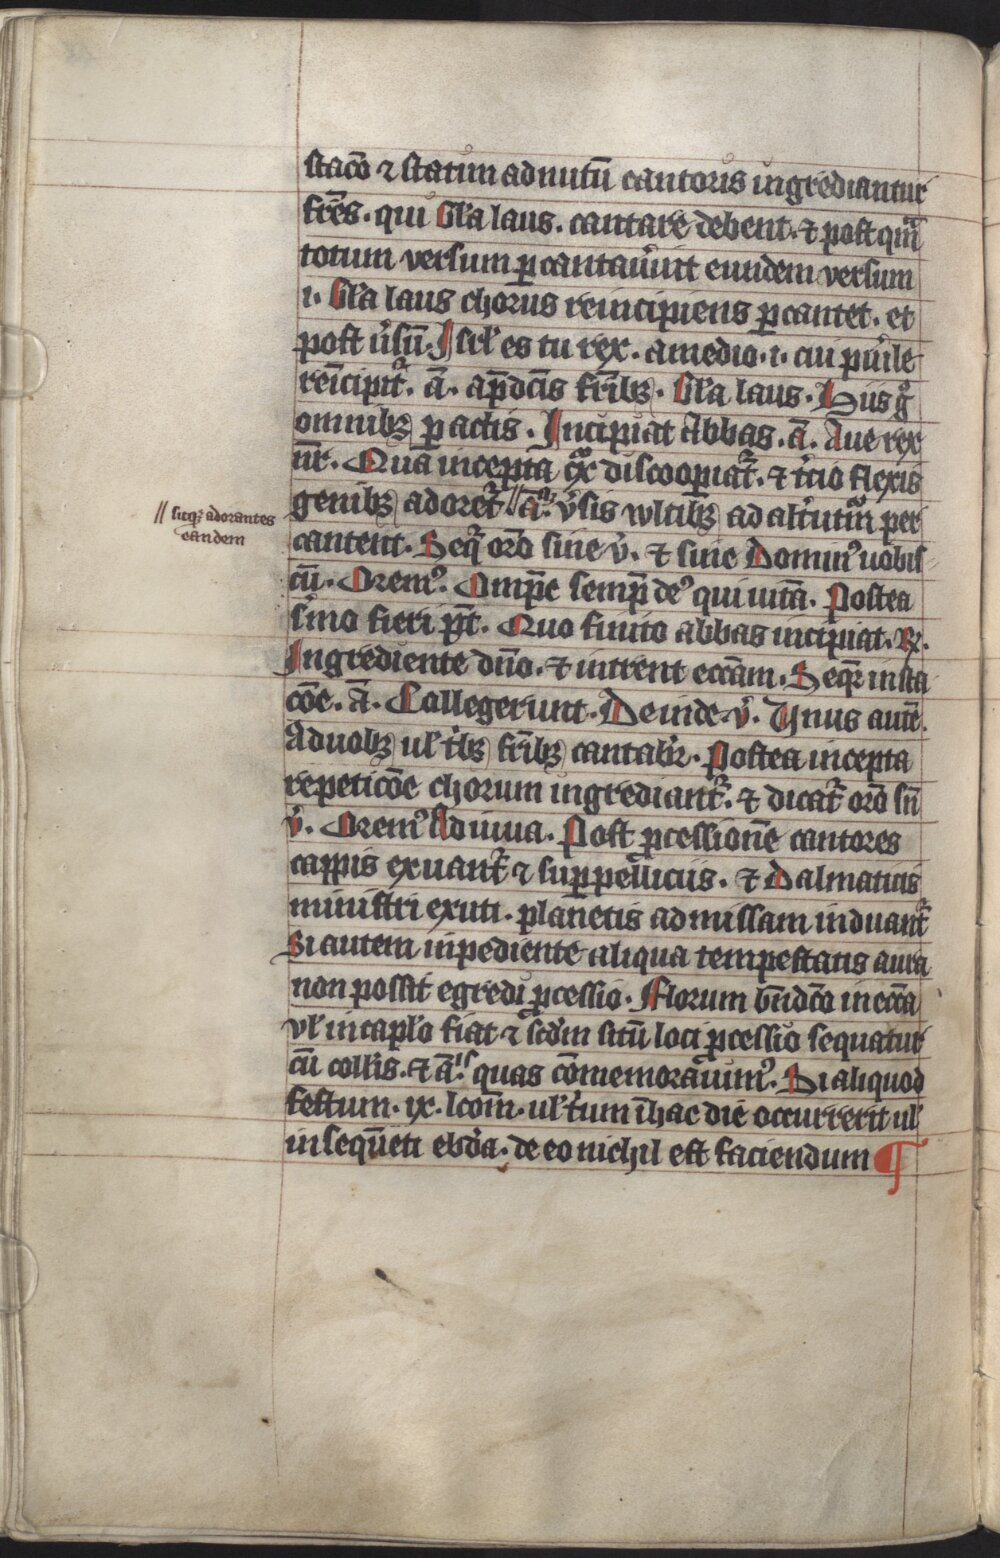 stacō ⁊ statim ad nutū cantoris ingrediantur
fr̄es. qui Gl̓a laus. cantare debent. ⁊ postqm̄
totum versum ꝑcantau̓int eundem versum
.i. Gl̓a laus chorus reincipiens ꝑcantet. et
post u̓sū. Isrl̓ es tu rex. a medio .i. cui pu̓ile
rēīcipit᷑. ā. ap̄dcīs fr̄ibꝫ. Gl̓a laus. Hiis gͦ
omnibꝫ ꝑactis. Incipiat Abbas. ā. Aue rex
nr̄. Qua incepta cͦx discoopiat᷑. ⁊ t̓cio flexis
genibꝫ adoret᷑ //ā. v̓sis vultibꝫ ad alt̓utm̄ per
// sicqꝫ adorantes
eandem
cantent. Seqr̓ orō sine v̓. ⁊ sine Domin᷒ uobis
cū. Orem᷒. Omp̄c semp̄ de᷒ qui uitā. Postea
s̓mo fieri pt̄. Quo finito abbas incipiat. ℟.
Ingrediente dn̄o. ⁊ intrent eccāam. Seqr̓ in sta
cōe. ā. Collegerunt. Deinde v̓. Unus autē.
A duobꝫ ul̓ t̓bꝫ fr̄ibꝫ cantabr̓. Postea incepta
repeticōe chorum ingrediant᷑. ⁊ dicat᷑ orō sn̄
v̓. Orem᷒ Adiuua. Post ꝓcessionē cantores
cappis exuant᷑ ⁊ suꝑpelliciis. ⁊ Dalmaticis
ministri exuti. planetis ad missam induant᷑
Si autem inpediente aliqua tempestatis aura
non possit egredi ꝓcessio. Florum bn̄dcō in ecc̄a
vl̓ in capl̓o fiat ⁊ scd̓m sitū loci ꝓcessio sequatur
cū coll̓is. ⁊ ā.is quas cōmemorauim᷒. Si aliquod
festum .ix. lcōm. ul̓ t̓um ī hac die occurrerit ul̓
in sequēti ebd̓a. de eo nichil est faciendum ¶